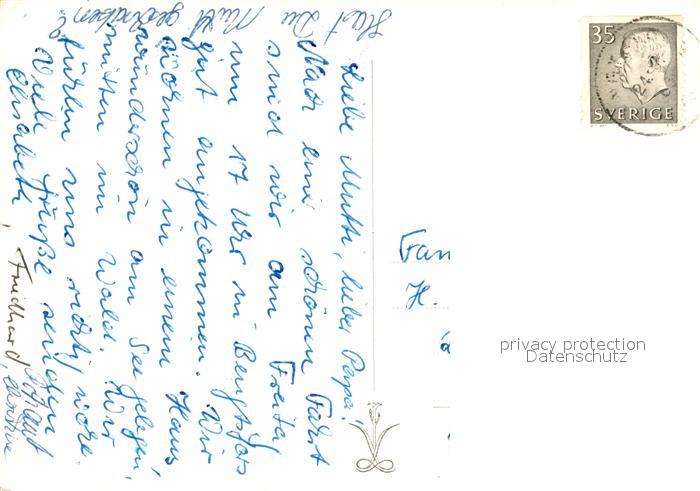 Liebe Mutti, lieber Papa!
Nach einer schönen Fahrt
sind wir am Freitag
um 17 Uhr in Bengtsfors
gut angekommen. Wir
wohnen in einem Haus
wunderschön am See gelegen,
mitten im Wald. Wir
fühlen uns richtig wohl.
Viele Grüße senden
Elisabeth, Friedhard,
Christine
Hast Du Mutti
Fam
H.
35
SVERIGE
privacy protection
Datenschutz